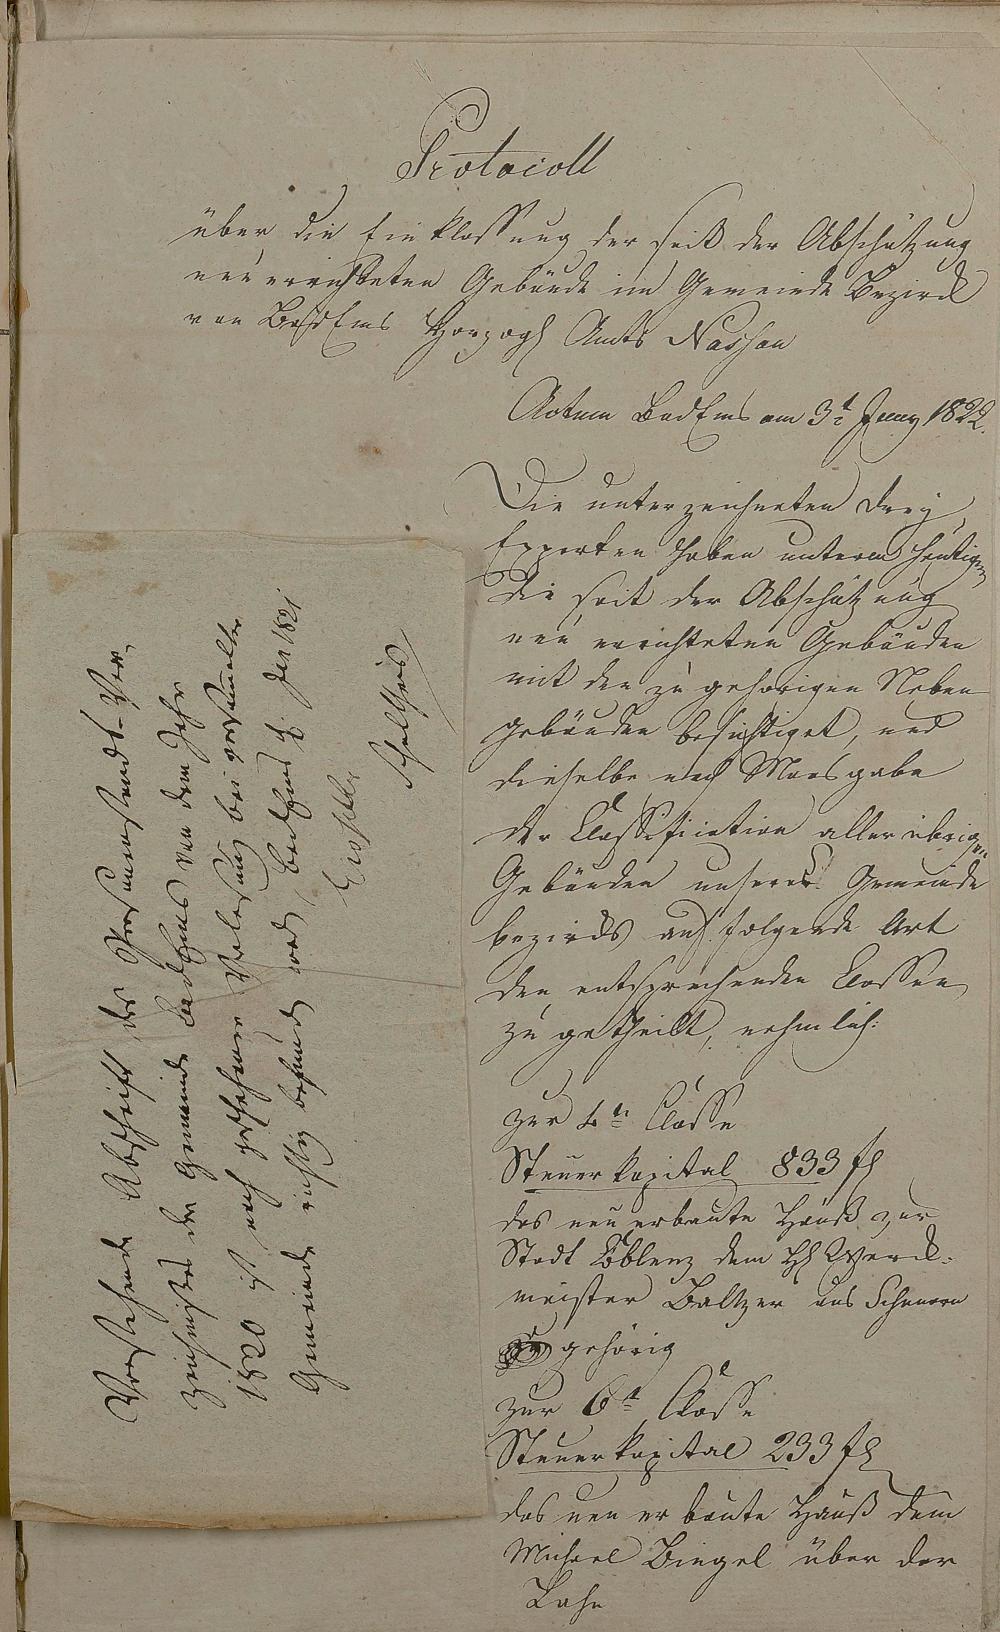 Protocoll
über die Einklassung der seit der Abschätzung
neu errichteten Gebäude im Gemeinde Bezirck
von BadEms Herzogl Amts Nassau
Actum BadEms am 3t Juny 1822.
Die unterzeichneten drey
Experten haben unterm heutigen
die seit der Abschätzung
neu errichteten Gebäuden
mit den zu gehörigen Neben
gebäuden besichtiget, und
dieselbe nach Maasgabe
der Classification aller übrigen
Gebäuden unseres Gemeinde
bezircks auf folgende Art
den entsprechenden Classen
zu getheilt, nehmlich:
zur 4tn Classe
Steuerkapital 833 fl
das neu erbaute Hauß zur
Stadt Coblenz dem H Werck-
meister Baltzer aus Scheuern
gehörig
zur 6t Classe
Steuerkapital 233 fl
das neu erbaute Hauß dem
Michael Bingel über der
Lahn
Vorstehende Abschrift des Personenstands-Ver-
zeichnisses der Gemeinde BadEms von dem Jahr
1820 ist nach geschehener Verlesung bei versammelter
Gemeinde richtig befunden word, BadEms Jan 1821
Schultheis